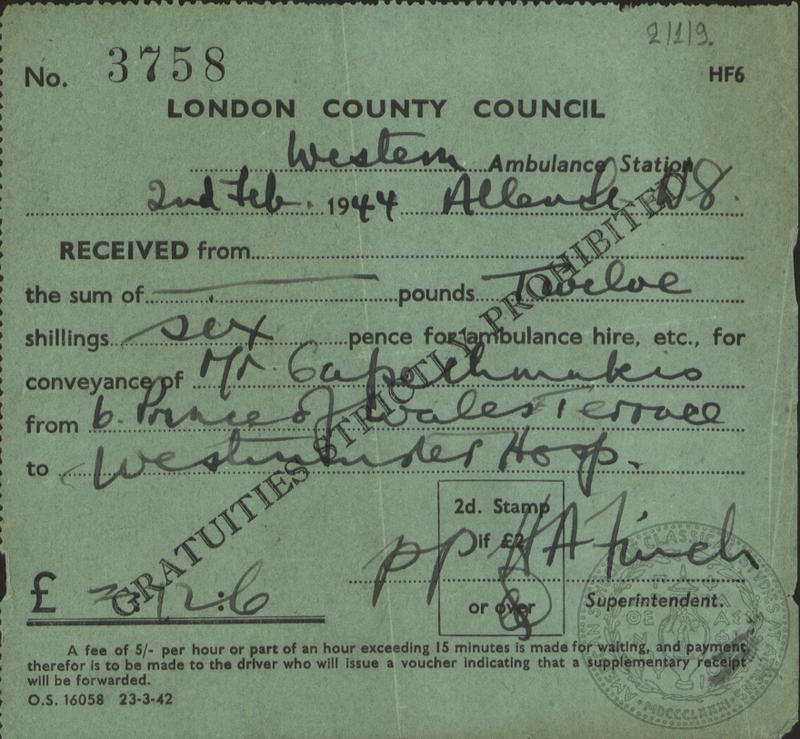 2/1/9.
No. 3758 HF6
LONDON COUNTY COUNCIL
Western Ambulance Station
2nd Feb. 1944
RECEIVED from
the sum of — pounds Twelve
shillings six pence for ambulance hire, etc., for
conveyance of Mr.
from 6. Prince of Wales Terrace
to Westminster Hosp.
GRATUITIES STRICTLY PROHIBITED
2d. Stamp
if £2
or over
pp H A Finch
£ 12:6
Superintendent.
A fee of 5/- per hour or part of an hour exceeding 15 minutes is made for waiting, and payment
therefor is to be made to the driver who will issue a voucher indicating that a supplementary receipt
will be forwarded.
O.S. 16058 23-3-42